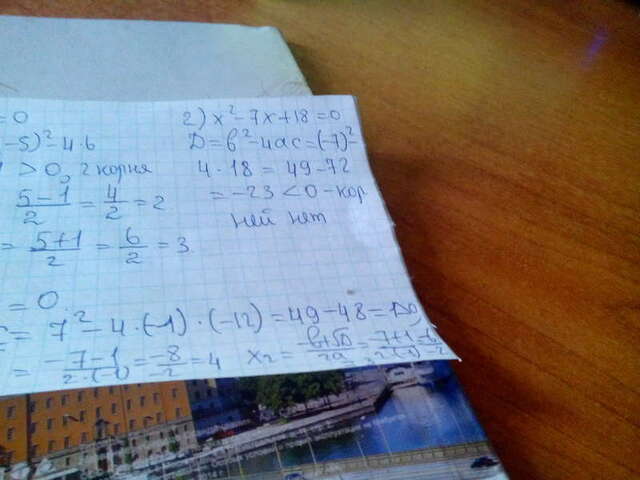 =0
-5)²-4·6
>0, 2 корня
5-1/2 = 4/2 = 2
= 5+1/2 = 6/2 = 3
2) x²-7x+18=0
D=b²-4ac=(-7)²-
4·18=49-72
=-23<0-кор
ней нет
=0.
= 7²-4·(-1)·(-12)=49-48=1>0
= -7-1/2·(-1) = -8/2 = 4 x₂ = -b+√D/2a = -7+1/2·(-1) = -6/-2